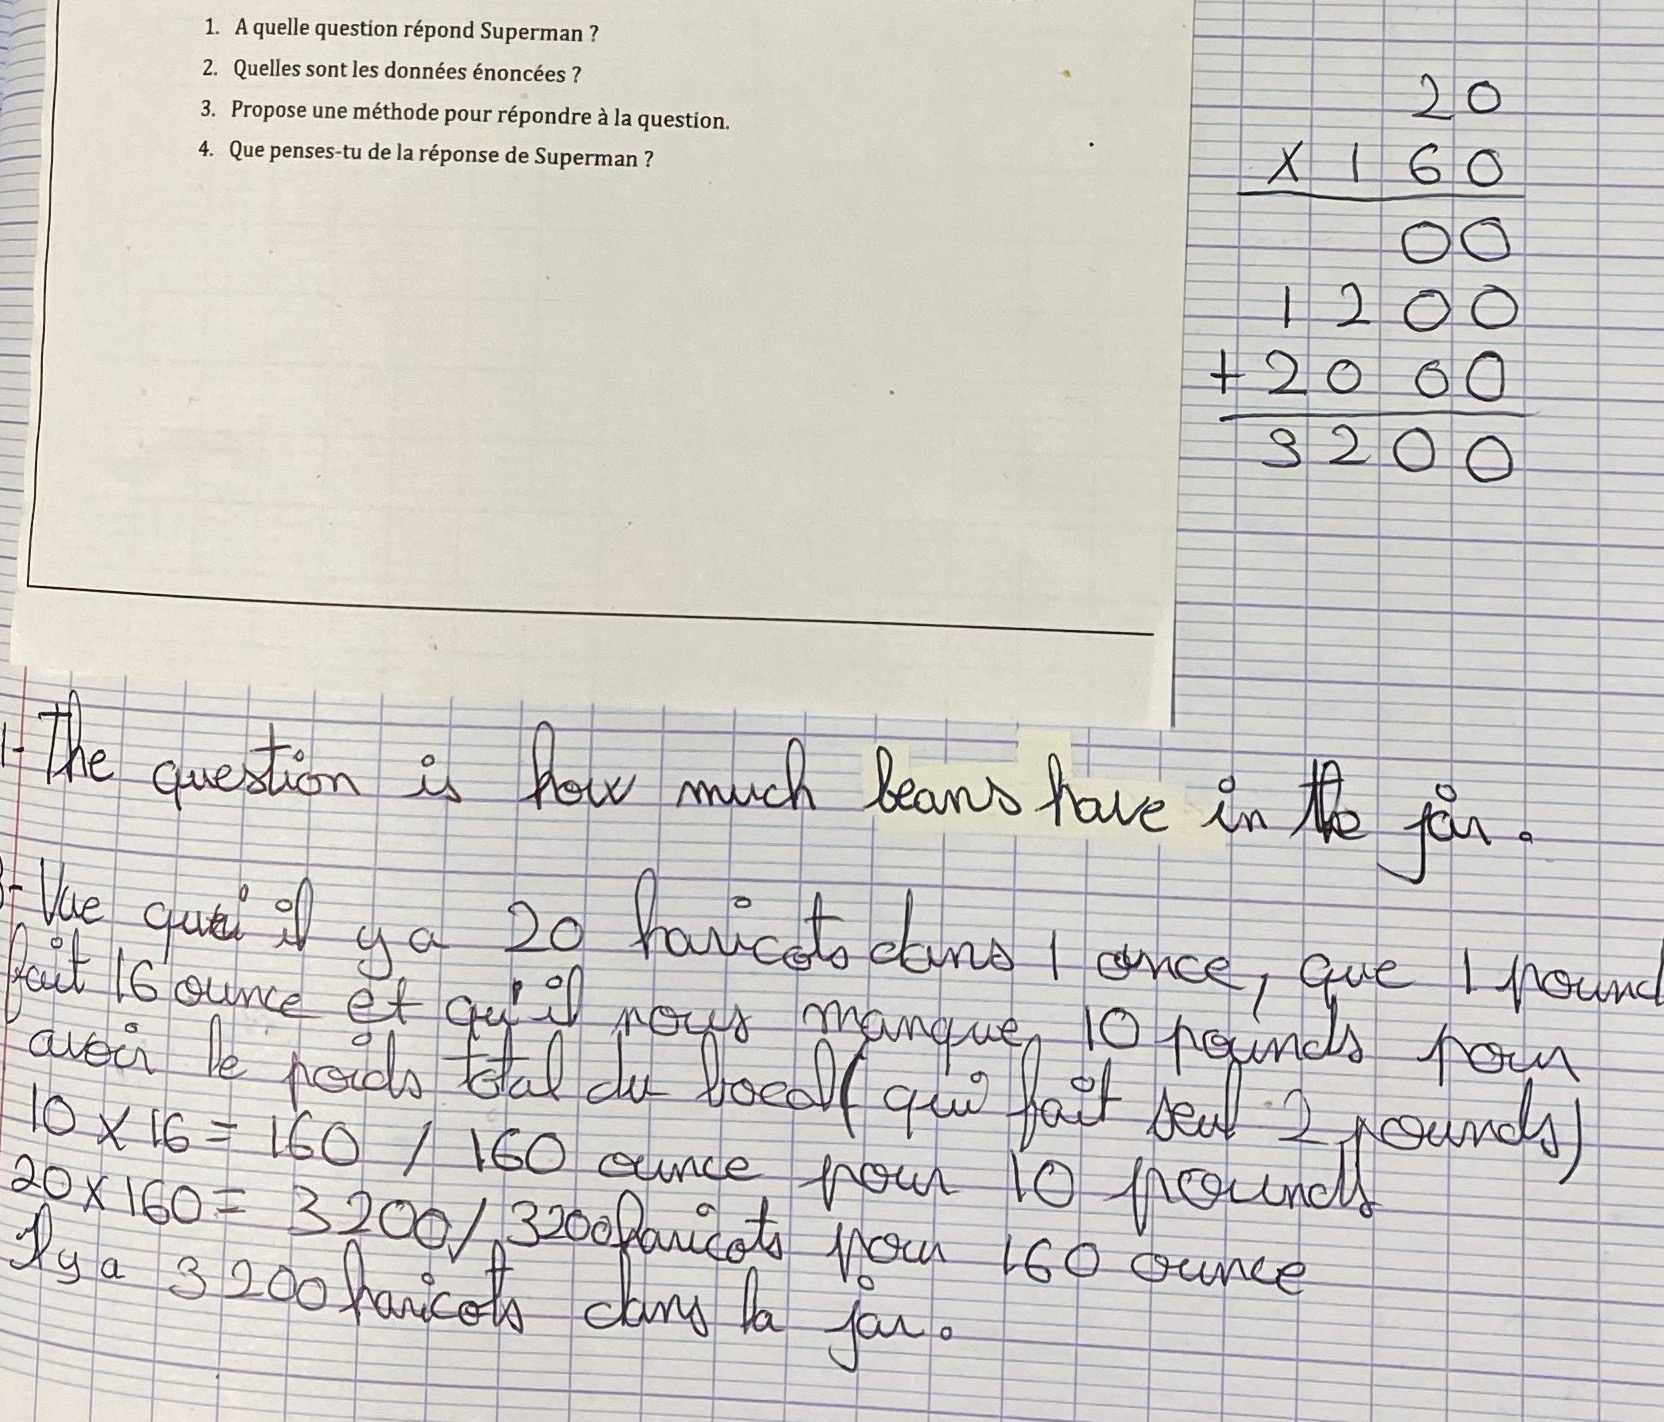 1. A quelle question répond Superman ?
2. Quelles sont les données énoncées ?
3. Propose une méthode pour répondre à la question.
4. Que penses-tu de la réponse de Superman ?
20
x 160
00
1200
+ 2000
3200
1- The question is how much beans have in the jar.
3- Vue qu'il y a 20 haricots dans 1 once, que 1 pound
fait 16 ounce et qu'il nous manque 10 pounds pour
avoir le poids total du bocal ( qui fait seul 2 pounds)
10 x 16 = 160 / 160 ounce pour 10 pounds
20 x 160 = 3200 / 3200 haricots pour 160 ounce
Il y a 3200 haricots dans la jar.